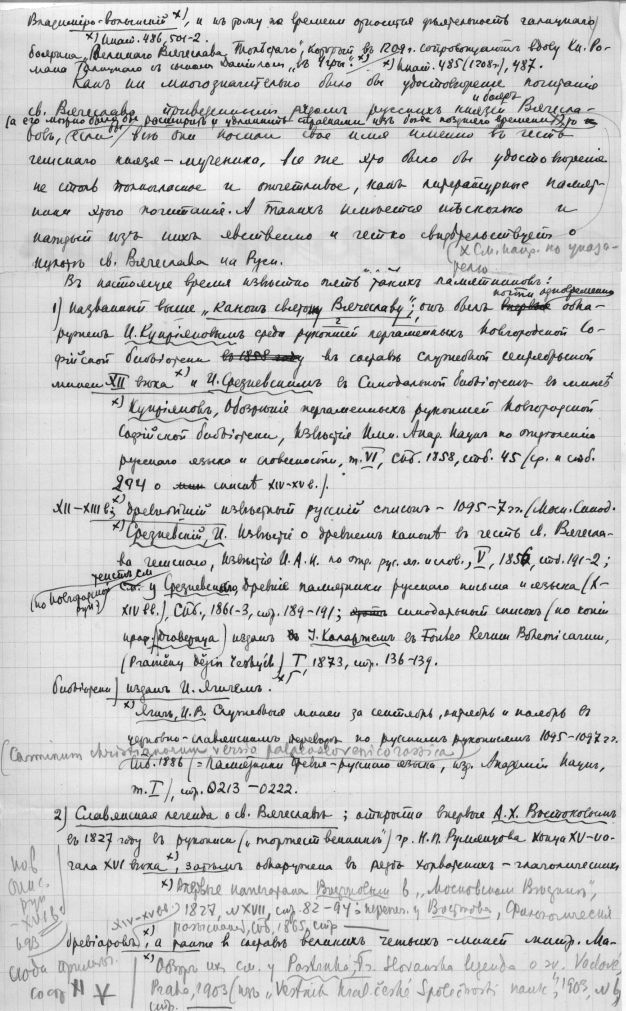 Владимиро-волынский х), и к тому же времени относится деятельность галицкаго
х) Ипат. 486, 501-2.
боярина „Великаго Вячеслава Толстаго", который въ 1209 г. сопровождалъ вдову Кн. Ро-
мана Галицкаго съ сыномъ Даніиломъ „въ Угры". х) х) Ипат. 485 (1208 г.), 487.
Какъ ни многозначительно было бы удостовѣреніе почитанія
св. Вячеслава приведеннымъ рядомъ русскихъ князей и бояръ Вячесла-
(а его можно было бы расширить и удлинить справками изъ болѣе поздняго времени)
вовъ, если бы всѣ они носили свое имя именно въ честь
чешскаго князя-мученика, все же это было бы удостовѣреніе
не столь полногласное и отчетливое, какъ литературные памят-
ники этого почитанія. А такихъ имѣется нѣсколько и
каждый изъ нихъ явственно и четко свидѣтельствуетъ о
культѣ св. Вячеслава на Руси.
(х См. напр. по указа-
телю
Въ настоящее время извѣстно пять такихъ памятниковъ:
1) названный выше „Канонъ святому Вячеславу"; онъ былъ почти одновременно обна-
руженъ И. Купріяновымъ среди рукописей пергаменныхъ Новгородской Со-
фійской библіотеки въ 1858 году въ составѣ служебной сентябрьской
минеи XII вѣка х) и И. Срезневскимъ въ Синодальной библіотекѣ въ минеѣ
х) Купріяновъ, Обозрѣніе пергаменныхъ рукописей Новгородской
Софійской библіотеки, Извѣстія Имп. Акад. Наукъ по отдѣленію
русскаго языка и словесности, т. VI, Спб. 1858, стб. 45 (ср. и стб.
294 о спискѣ XIV-XV в.).
XII-XIII в; х) древнѣйшій извѣстный русскій списокъ - 1095-7 гг. (Моск. Синод.
х) Срезневскій, И. Извѣстіе о древнемъ канонѣ въ честь св. Вячесла-
ва чешскаго, Извѣстія И. А. Н. по отд. рус. яз. и слов., V, 1856, стб. 191-2;
текстъ см.
(по Новгородской рук.) у Срезневскаго, Древніе памятники русскаго письма и языка (X-
XIV вв.), Спб., 1861-3, стр. 189-191; синодальный списокъ (по копіи
прот. Дювернуа) изданъ I. Калаускомъ въ Fontes Rerum Bohemicarum,
(Prameny dějin českých) I, 1873, стр. 136-139.
библіотеки) изданъ И. Ягичемъ. х)
х) Ягичъ, И. В. Служебныя минеи за сентябрь, октябрь и ноябрь въ
церковно-славянскомъ переводѣ по русскимъ рукописямъ 1095-1097 гг.
(Carminum christianorum versio palaeoslovenico-rossica)
Спб. 1886 (= Памятники древне-русскаго языка, изд. Академіи Наукъ,
т. I), стр. 0213-0222.
2) Славянская легенда о св. Вячеславѣ; открыта впервые А. Х. Востоковымъ
въ 1827 году въ рукописи („торжественникѣ") гр. Н. П. Румянцова конца XV-на-
чала XVI вѣка х), затѣмъ обнаружена въ рядѣ хорватскихъ-глаголическихъ
х) Впервые напечатана Востоковым в „Московском Вѣстникѣ",
1827, N XVII, стр. 82-94; перепеч. у Востокова, Филологическія
розысканія, Спб, 1865, стр
XIV-XV вв.
бревіаровъ, а ранѣе въ составѣ великихъ четьихъ-миней митр. Ма-
х) Обзор их см. у Pastrnka, Fr. Slovanska legenda o sv. Vaclavě
Praha, 1903 (изъ „Vestnik Kral. české Společnosti nauk", 1903, N 6
стр.
нов
спис.
рук
- XVI в
693
сюда примеч.
со стр XI V